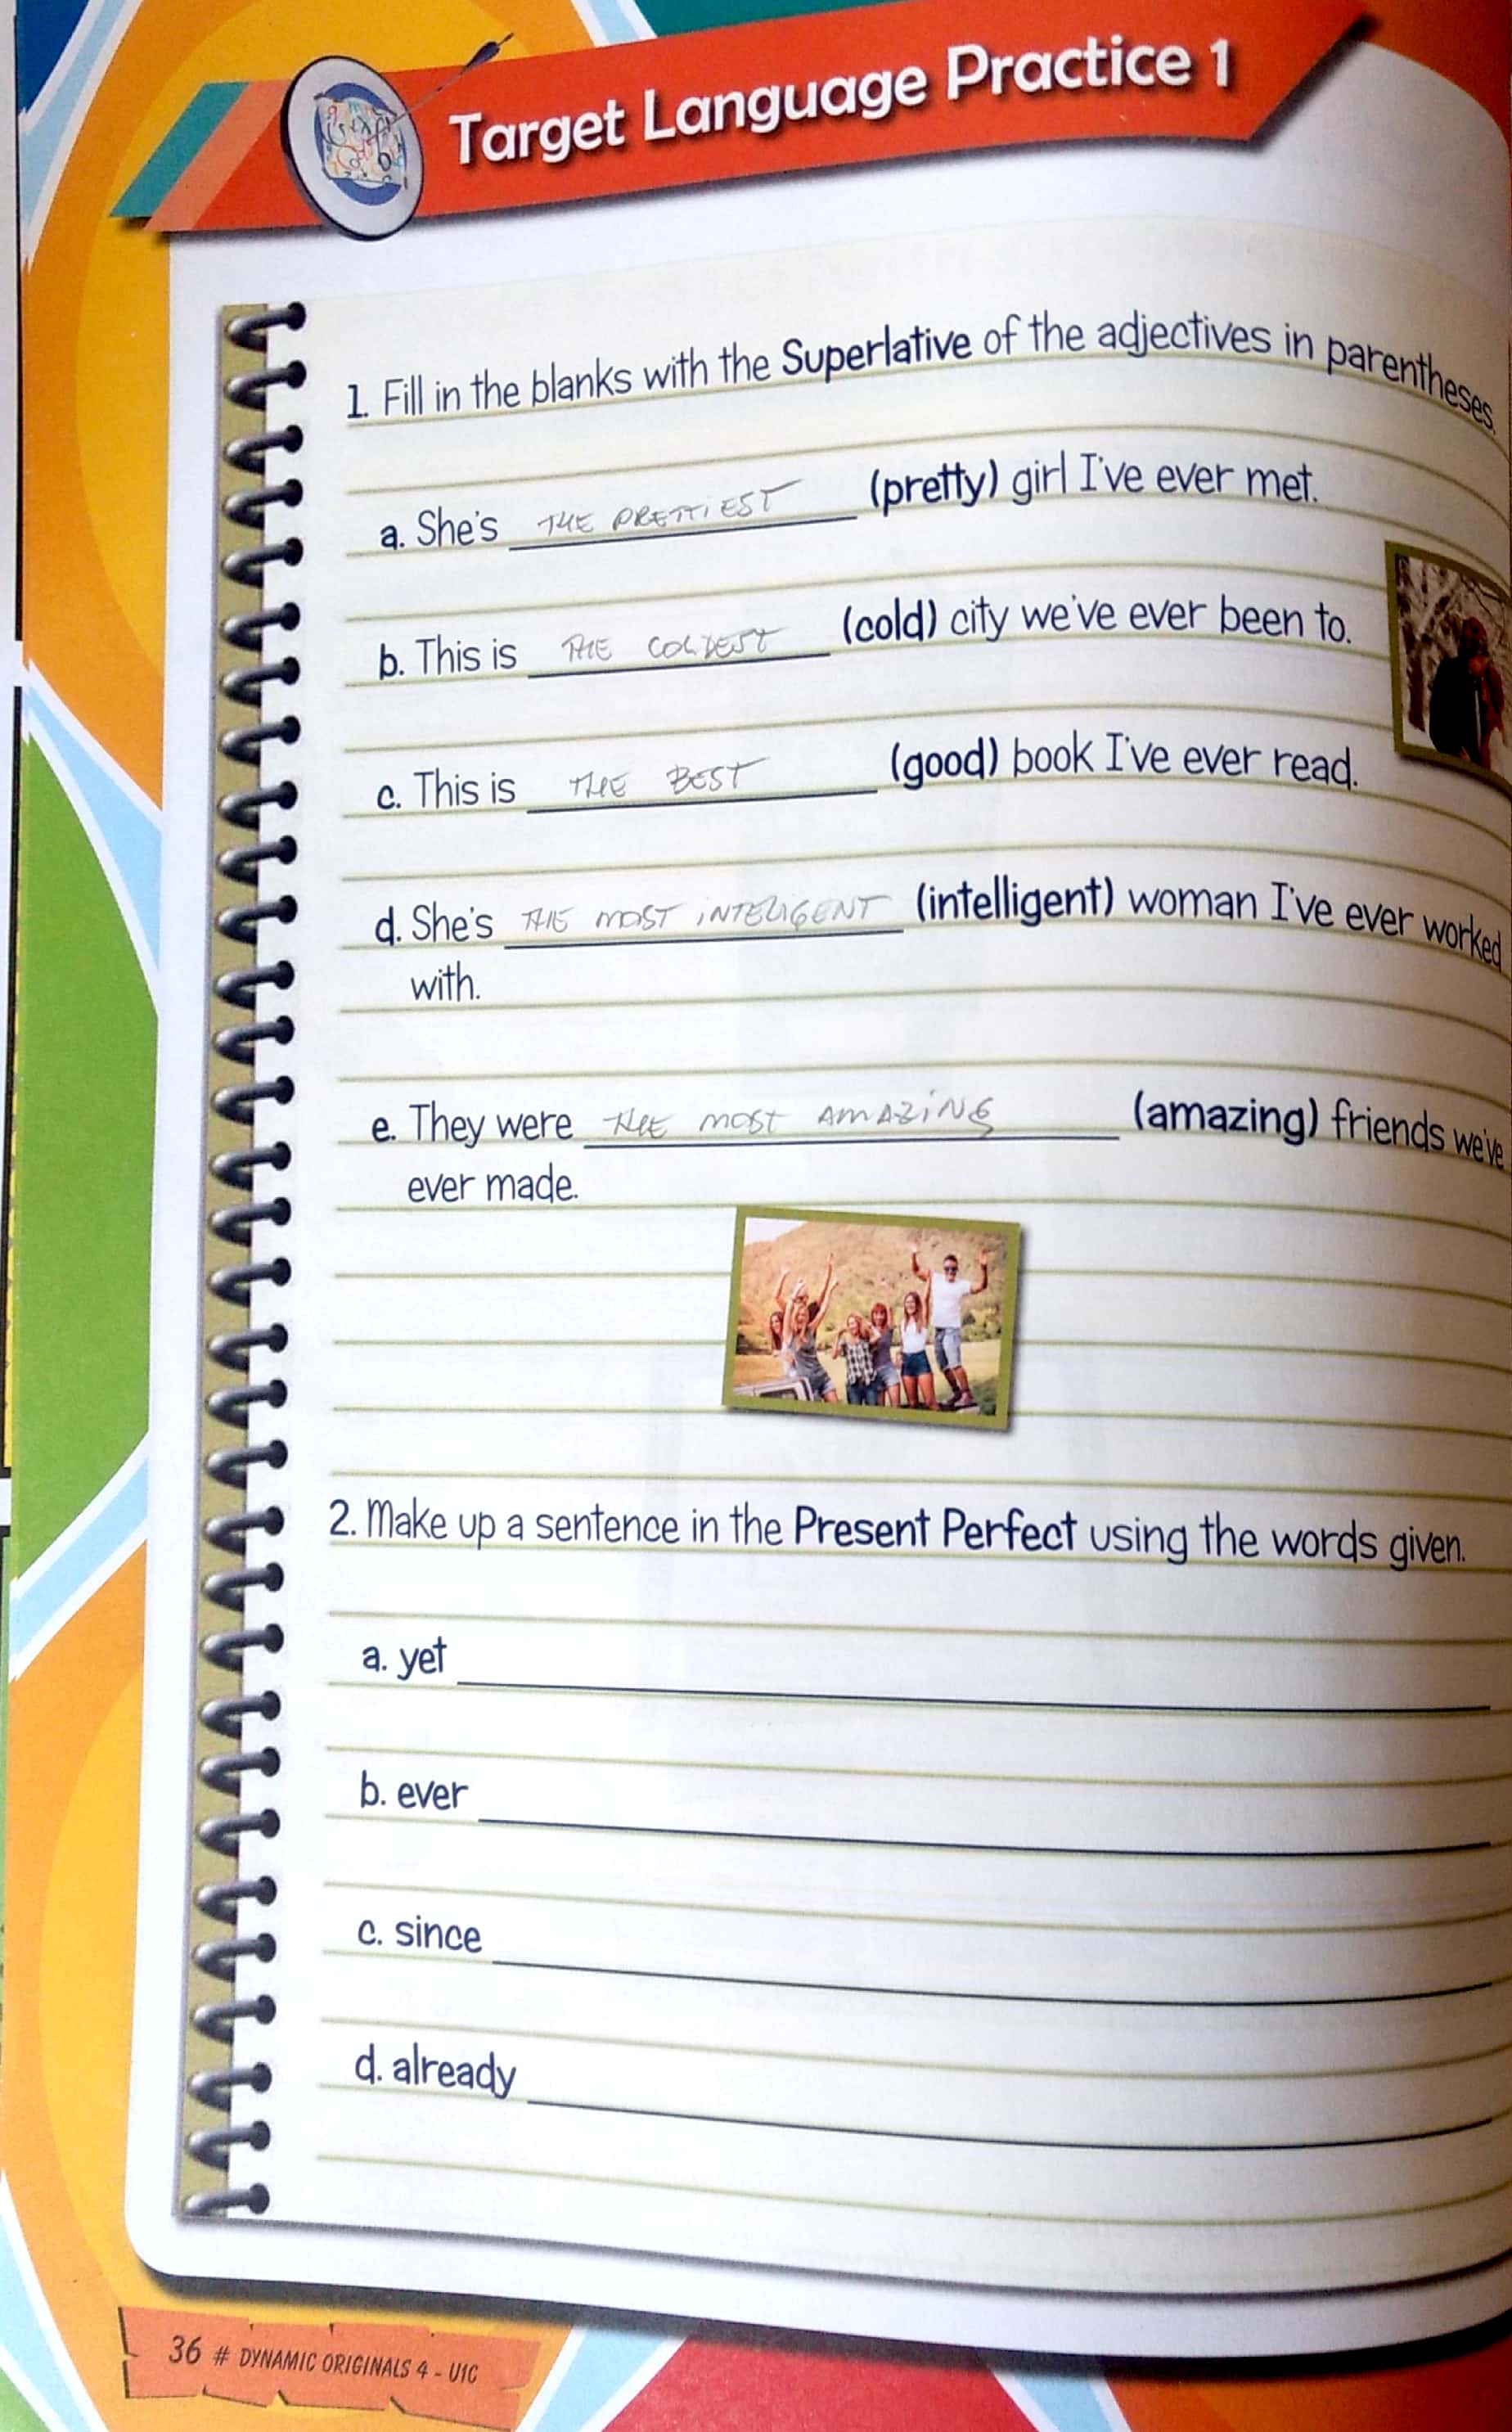 Target Language Practice 1
1. Fill in the blanks with the Superlative of the adjectives in parentheses.
a. She's THE PRETTIEST (pretty) girl I've ever met.
b. This is THE COLDEST (cold) city we've ever been to.
c. This is THE BEST (good) book I've ever read.
d. She's THE MOST INTELIGENT (intelligent) woman I've ever worked
with.
e. They were THE MOST AMAZING (amazing) friends we've
ever made.
2. Make up a sentence in the Present Perfect using the words given.
a. yet
b. ever
c. since
d. already
36 # DYNAMIC ORIGINALS 4 - U1C